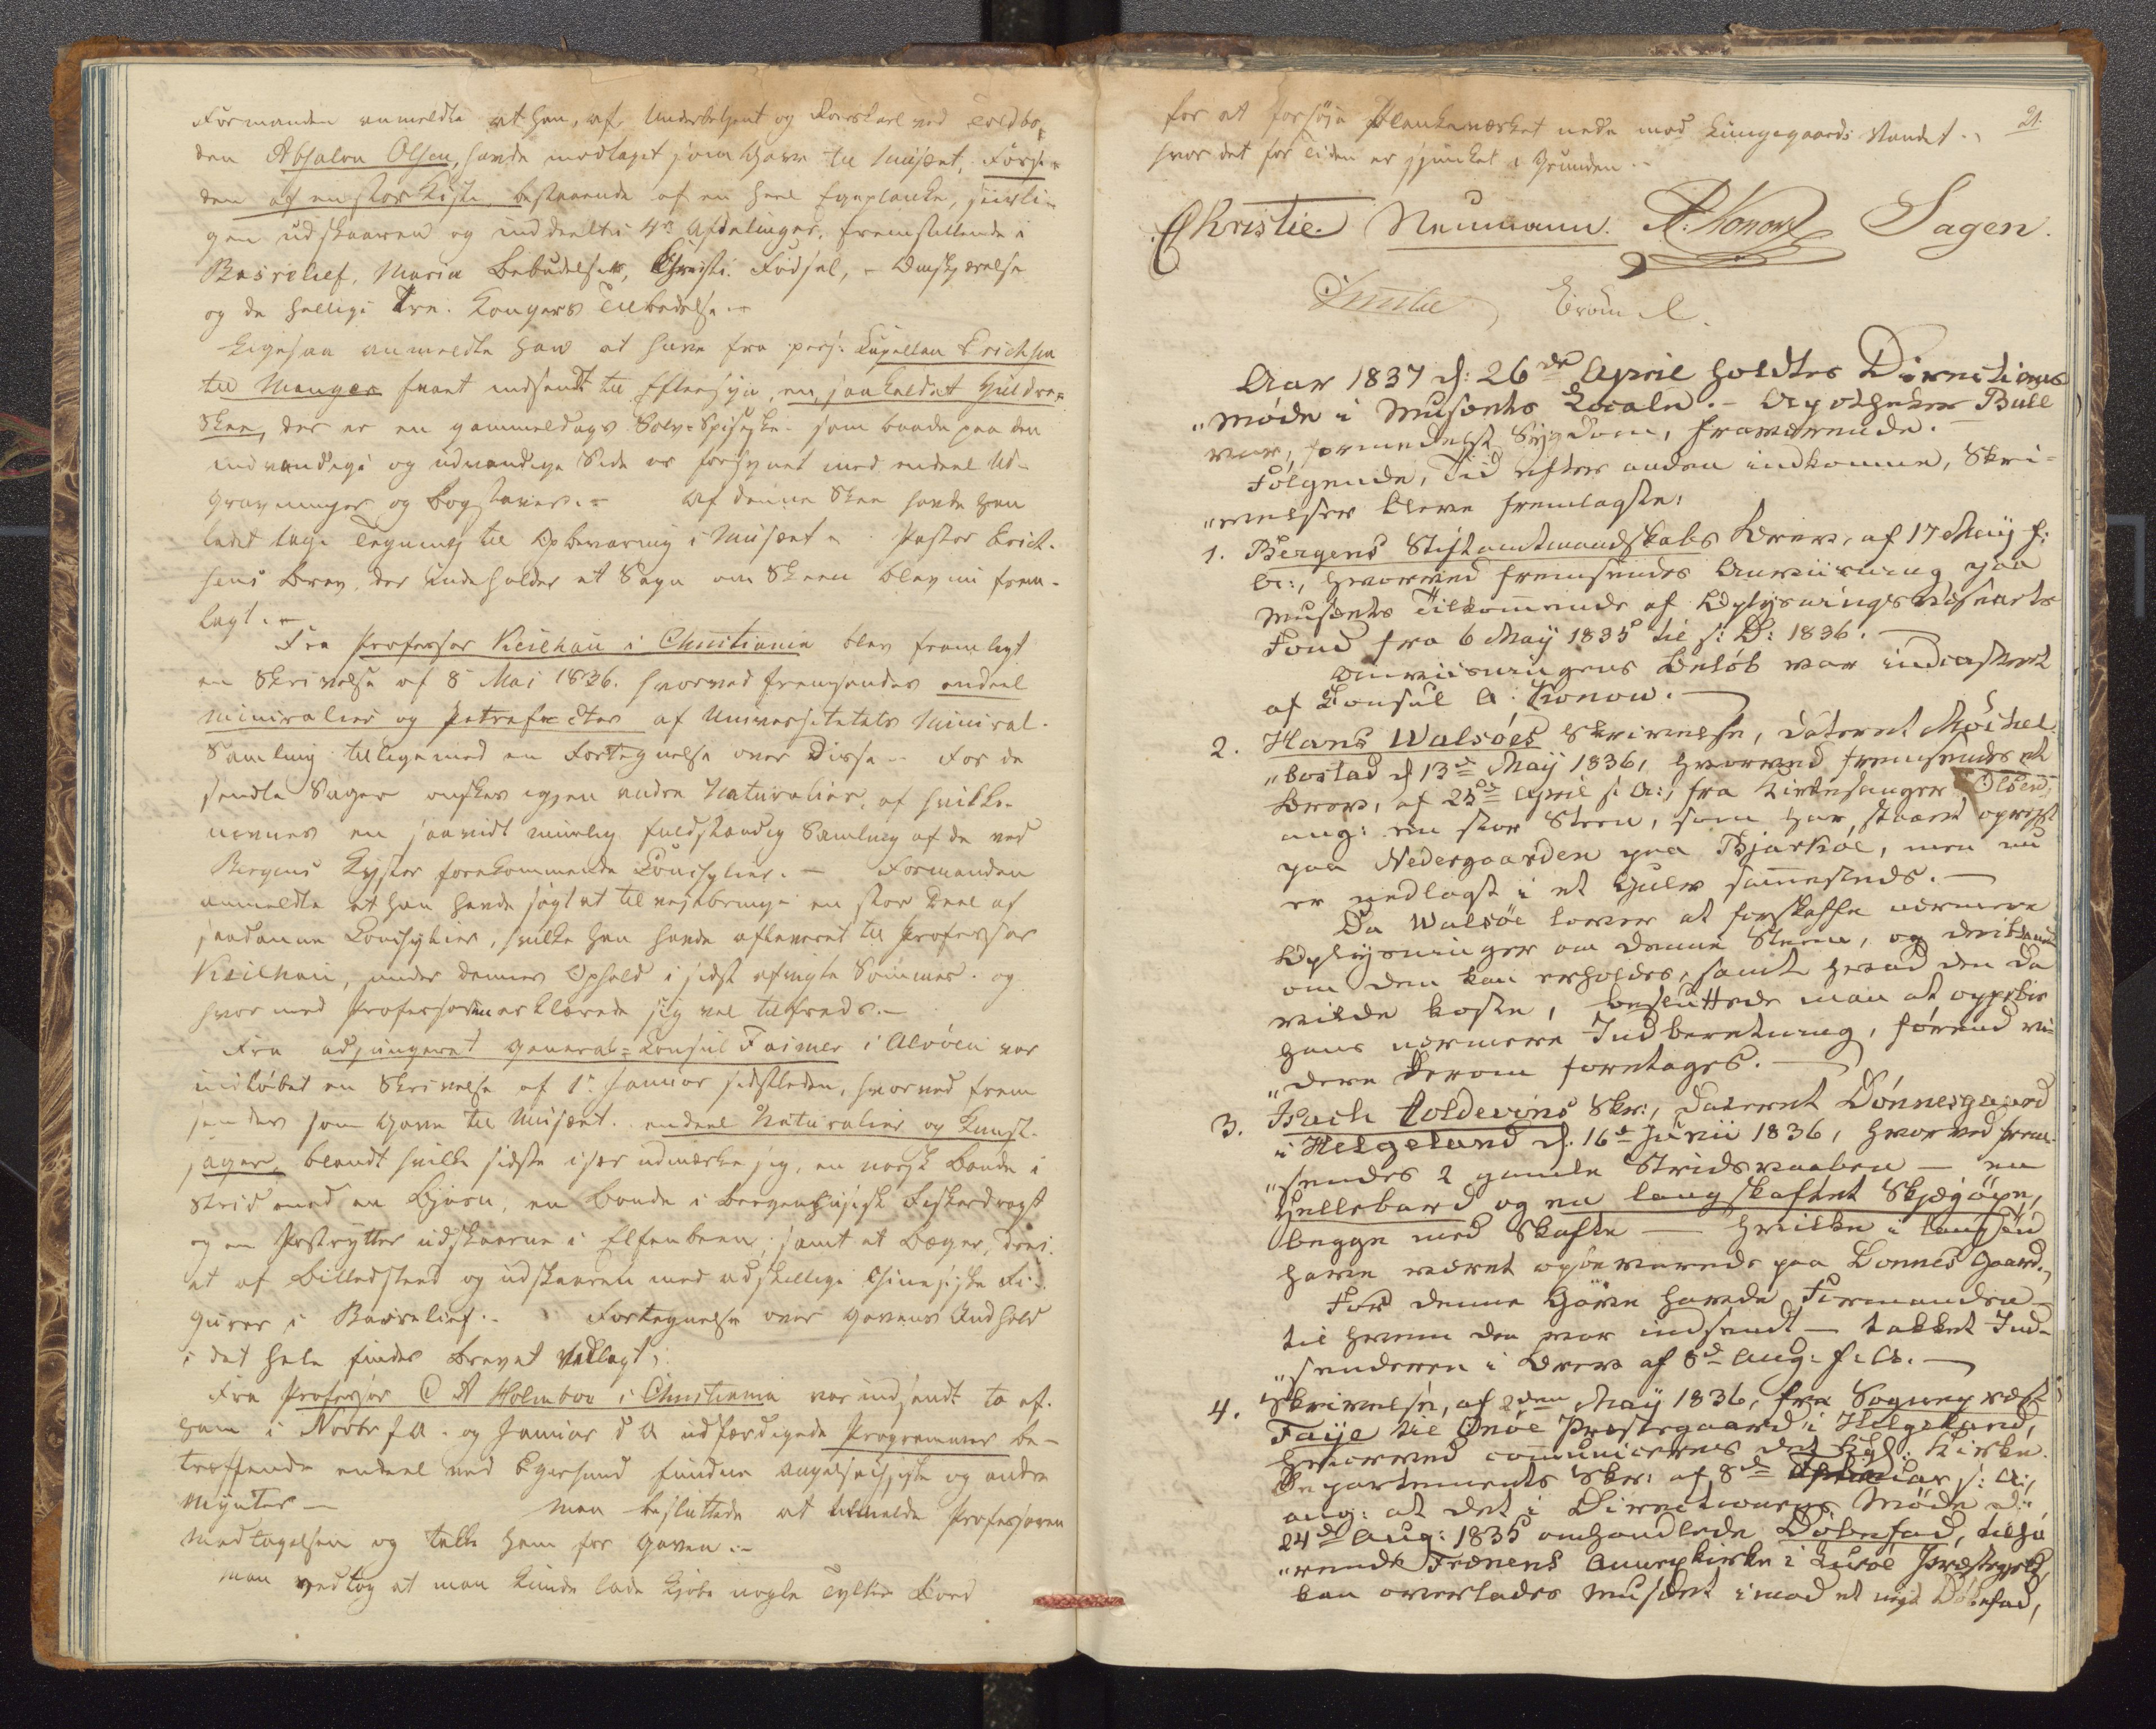 Formanden anmeldte at han, af Underbetjent og Roerskarl ved Toldbo-
den Absalon Olsen, havde modtaget som Gave til Musæet, Forsi-
den af en stor Kiste, bestaaende af en heel Egeplanke, siirli-
gen udskaaren og inddeelt i 4re Afdelinger, fremstillende i
Basrelief, Maria Bebudelse, Christi Fødsel, - Omskjærelse
og de hellige Tre Kongers Tilbedelse. -
Ligesaa anmeldte han at have fra pers: Kapellan Erichsen
til Manger faaet indsendt til Eftersyn, en saakaldet Huldre-
Skee, der er en gammeldags Sølv-Spiseske som baade paa den
indvendige og udvendige Side er forsynet med endeel Ud-
gravninger og Bogstaver. - Af denne Skee havde han
ladet tage Tegning til Opbevaring i Musæet - Pastor Erich-
sens Brev, der indeholder et Sagn om Skeen blev nu frem-
lagt. -
Fra Professor Keilhau i Christiania blev fremlagt
en Skrivelse af 8 Mai 1836. hvorved fremsendes endeel
Mineralier og Petrefacter af Universitetets Mineral-
Samling tilligemed en Fortegnelse over Disse - For de
sendte Sager ønskes igjen andre Naturalier, af hvilke
nævnes en saavidt muelig fuldstændig Samling af de ved
Bergens Kyster forekommende Conchylier. - Formanden
anmeldte at han havde søgt at tilvejebringe en stor Deel af
saadanne Conchylier, hvilke han havde afleveret til Professor
Keilhau, under dennes Ophold i sidst afvigte Sommer, og
hvormed Professoren erklærede sig vel tilfreds. -
Fra adjungeret General-Consul Faimer i Alvøen var
indløbet en Skrivelse af 1. Januar sidstleden, hvorved frem
sendes som Gave til Musæet endeel Naturalier og Kunst-
sager, blandt hvilke sidste især udmærke sig, en norsk Bonde i
Strid med en Bjørn, en Bonde i Bergenhusisk Fiskerdragt
og en Postrytter udskaarne i Elfenbeen, samt et Bæger, drei-
et af Billedsteen og udskaaren med adskillige Chinesiske Fi-
gurer i Basrelief. - Fortegnelse over Gavens Indhold
i det hele findes Brevet vedlagt,
Fra Professor C A Holmboe i Christiania var indsendt to af
ham i Novbr f A. og Januar d A udfærdigede Programmer be-
træffende endeel ved Egersund fundne angelsachsiske og andre
Mynter - Man besluttede at tilmelde Professoren
Modtagelsen og takke ham for Gaven. -
Man vedtog at man kunde lade kjøbe nogle Tylter Bord
21.
for at forhøje Plankeværket nede mod Lungegaards Vandet.,
hvor det for Tiden er sjunket i Grunden. -
Christie. Neumann. A. Konow Sagen.
Aar 1837 d: 26de April holdtes Directions-
„møde i Musæets Locale. - Apotheker Bull
var, formedelst Sygdom, fraværende. -
Følgende, Tid efter anden indkomne, Skri-
„velser bleve fremlagte:
1. Bergens Stiftamtmandskabs Brev, af 17 Maÿ f:
A:, hvorved fremsendes Anviisning paa
Musæets Tilkommende af Oplysningsvæsenets
Fond fra 6 Maÿ 1835 til s: D: 1836. -
Anviisningens Beløb var indcasseret
af Consul A: Konow. -
2. Hans Walsøes Skrivelse, dateret Møckel
„bostad d 13de Maÿ 1836, hvorved fremsendes et
Brev, af 25de April s: A:, fra Kirkesanger Olsen,
ang: en stor Steen, som har staaet opreist
paa Nedergaarden paa Bjarkøe, men nu
er nedlagt i et Gulv sammesteds. -
Da Walsøe lover at forskaffe nærmere
Oplysninger om denne Steen, og
om den kan erholdes, samt hvad den da
vilde koste, besluttede man at oppebie
hans nærmere Indberetning, førend vi-
„dere derom foretages. -
3. Isach Coldevins Skr:, dateret Dønnesgaard
i Helgeland d. 16de Junii 1836, hvorved frem-
„sendes 2 gamle Stridsvaaben - en
Hellebard og en langskaftet Skjægöxe,
begge med Skafte - hvilke i længsen
have været opbevarede paa Dønnes Gaard.,
For denne Gave havde Formanden -
til hvem den var indsendt - takket Ind-
„senderen i Brev af 8de Aug: f: A. -
4. Skrivelse, af 2den Maÿ 1836, fra Sognepræst
Faÿe til Onøe Præstegaard i Helgeland,
hvorved communiceres det kgl: Kirke-
Departements Skr: af 8de s: A:,
ang: at det i Directionens Møde d:
24de Aug: 1835 omhandlede Døbefad, tilhø
„rende Trænens Annexkirke i Lurøe Præstegjeld,
kan overlades Musæet imod et nyt Døbefad,